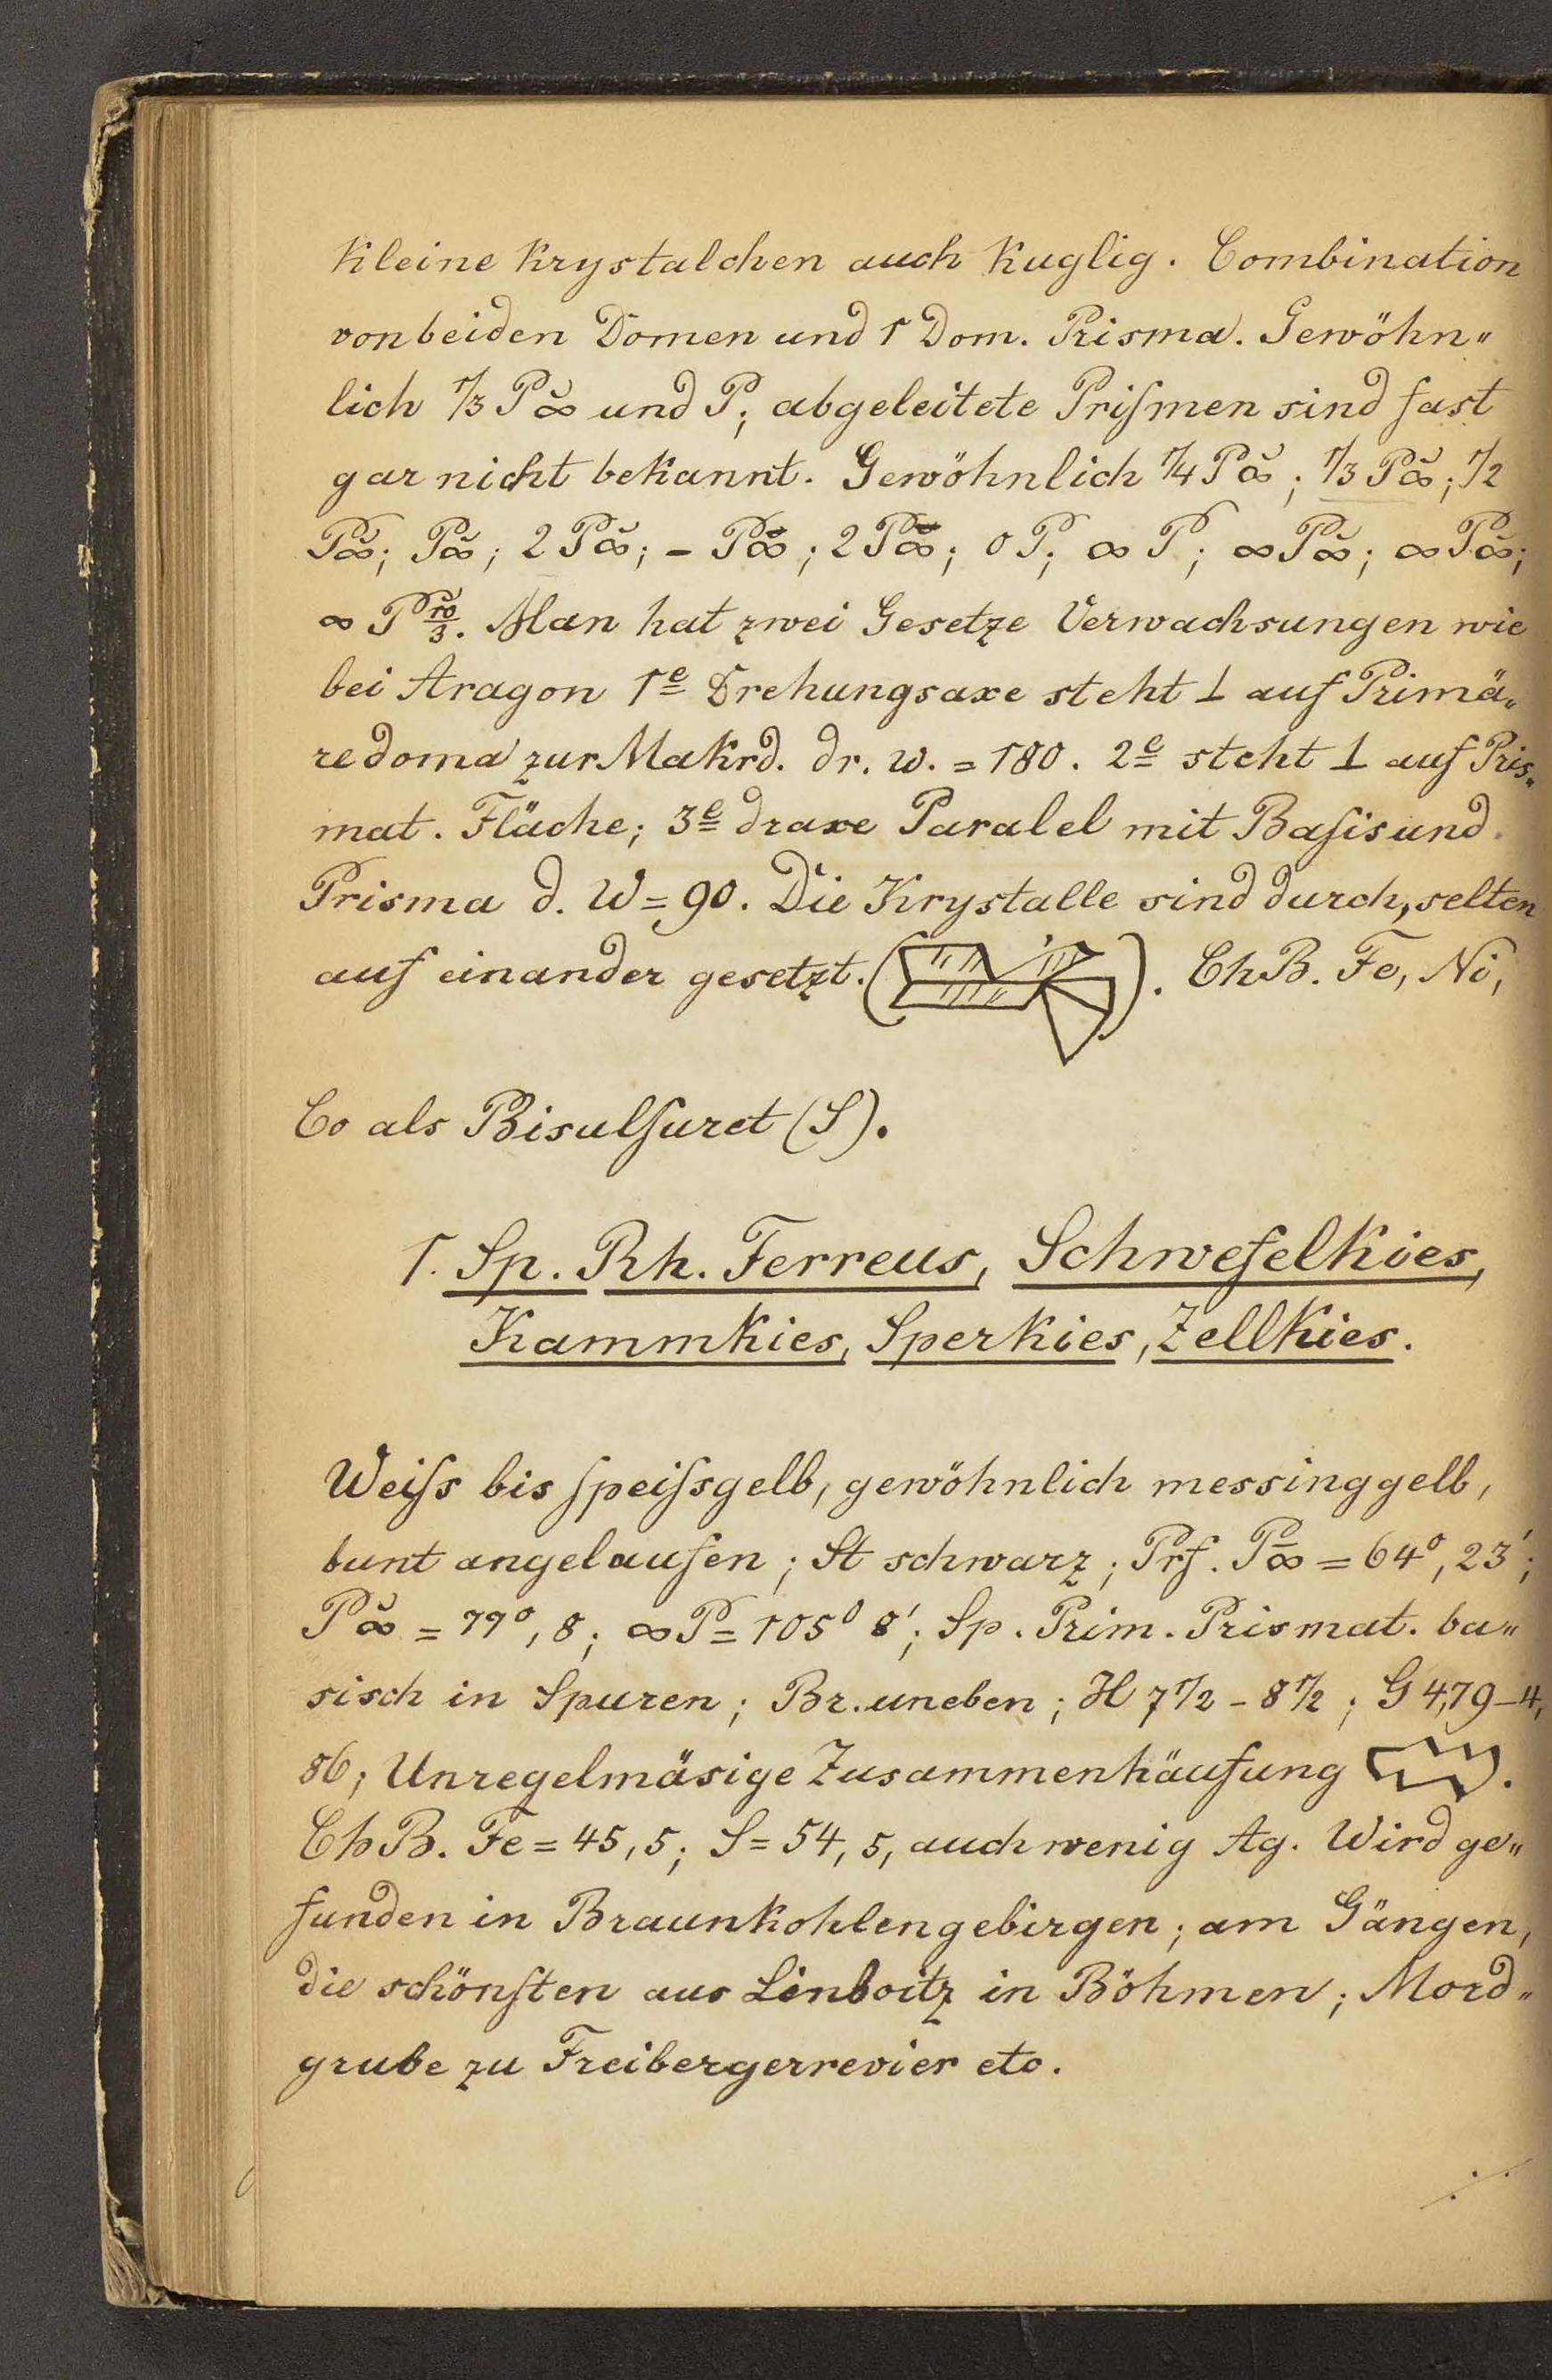 Kleine Krystalchen auch Kuglig. Combination
von beiden Domen und 1 Dom. Prisma. Gewöhn„
lich 1/3 P̆∞ und P; abgeleitete Priſmen sind fast
gar nicht bekannt. Gewöhnlich 1/4 P̆∞; 1/3 P̆∞; 1/2
P̆∞; P̆∞; 2 P̆∞; - P̄∞; 2 P̄∞; 0 P; ∞ P; ∞ P̆∞; ∞ P̆∞;
∞ P̆ 10/3. Man hat zwei Gesetze Verwachsungen wie
bei Aragon 1e Drehungsaxe steht ⊥ auf Primä„
redoma zur Makrd. dr. w. = 180. 2e steht ⊥ auf Pris„
mat. Fläche; 3e draxe Paralel mit Baſis und
Prisma d. W = 90. Die Krystalle sind durch, selten
auf einander gesetzt. ( ). ChB. Fe, Ni,
Co als Bisulfuret (S).
1. Sp. Rh. Ferreus, Schwefelkies,
Kammkies, Sperkies, Zellkies.
Weiſs bis ſpeiſsgelb, gewöhnlich messinggelb,
bunt angelaufen; St schwarz; Prf. P̄∞ = 64°, 23';
P̆∞ = 77°, 8; ∞P = 105° 8'; Sp. Prim. Prismat. ba„
sisch in Spuren; Br. uneben; H 7 1/2 - 8 1/2; G 4,79 - 4,
86; Unregelmäsige Zusammenhäufung .
ChB. Fe = 45,5; S = 54,5, auch wenig Ag. Wird ge„
funden in Braunkohlengebirgen; am Gängen,
die schönſten aus in Böhmen; Mord„
grube zu Freibergerrevier etc.